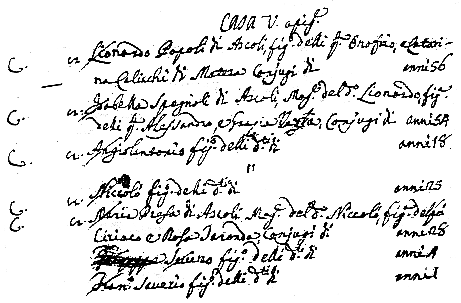 CASA V. 
C. cr. Lionardo Popoli di Ascoli, fig.º delli q.m Onofrio, e Catari-
na Celischi di Matera Conjugi di anni 56
C. cr. Isabella Spagnoli di Ascoli, Mog.e del d.º Lionardo, fig.
delli q.m Alessandro, e Grazia Conjugi di anni 54
C. cr. Angiolantonio fig.º delli d.ti di anni 18
"
C. cr. Niccolò fig.º delli d.ti di anni 25
C. cr. Maria di Ascoli, Mog.e del d.º Niccolò, fig.
Ciriaco e Rosa Conjugi di anni 28
Saverio fig.º delli d.ti di anni 4
Saverio fig.º delli d.ti di anni 1